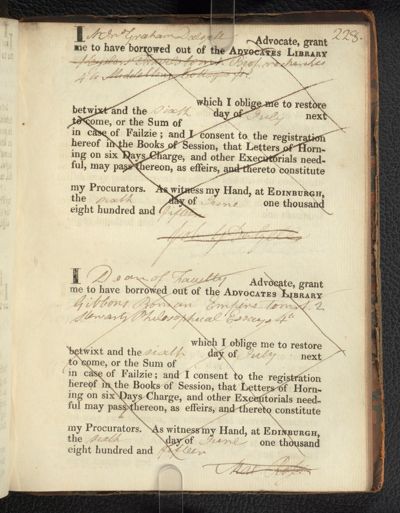 228.
I Mr Graham Dalyell Advocate, grant
me to have borrowed out of the ADVOCATES LIBRARY
4to
which I oblige me to restore
betwixt and the sixth day of July next
to come, or the Sum of
in case of Failzie; and I consent to the registration
hereof in the Books of Session, that Letters of Horn-
ing on six Days Charge, and other Executorials need-
ful, may pass thereon, as effeirs, and thereto constitute
my Procurators. As witness my Hand, at EDINBURGH,
the sixth day of June one thousand
eight hundred and fifteen
I Dean of Faculty Advocate, grant
me to have borrowed out of the ADVOCATES LIBRARY
Gibbons Roman Empire tom. 1. 2
Stewarts Philosophical Essays 4to
which I oblige me to restore
betwixt and the sixth day of July next
to come, or the Sum of
in case of Failzie; and I consent to the registration
hereof in the Books of Session, that Letters of Horn-
ing on six Days Charge, and other Executorials need-
ful may pass thereon, as effeirs, and thereto constitute
my Procurators. As witness my Hand, at EDINBURGH,
the sixth day of June one thousand
eight hundred and fifteen